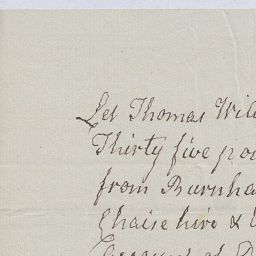 Let Thomas Wil
Thirty five po
from Burnha
Chaise hire &
Account of